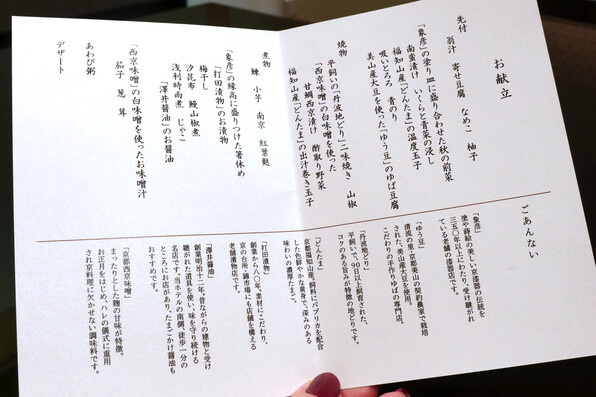 お献立
先付
翁汁 寄せ豆腐 なめこ 柚子
「象彦」の塗り皿に盛り合わせた秋の前菜
南蛮漬け いくらと青菜の浸し
福知山産「どんたま」の温度玉子
吸いとろろ 青のり
美山産大豆を使った「ゆう豆」のゆば豆腐
焼物
平飼いの「丹波地どり」二味焼き 山椒
「西京味噌」の白味噌を使った
甘鯛西京漬け 酢取り野菜
福知山産「どんたま」の出汁巻き玉子
煮物
鰊 小芋 南京 紅葉麩
「象彦」の縁高に盛りつけた箸休め
「打田漬物」のお漬物
梅干し
汐昆布 鰻山椒煮
浅利時雨煮 じゃこ
「澤井醤油」のお醤油
「西京味噌」の白味噌を使ったお味噌汁
茄子 葱 茸
あわび粥
デザート
ごあんない
「象彦」
塗や蒔絵の美しい京漆器の伝統を
三五〇年以上にわたり、受け継がれ
ている老舗の漆器店です。
「ゆう豆」
清流の里・京都美山の契約農家で栽培
された、美山産大豆を使用。
こだわりの手作りゆばの専門店。
「丹波地どり」
平飼いで、90日以上飼育された、
コクのある旨みが特徴の地どりです。
「どんたま」
京都福知山産。飼料にパプリカを配合
した色鮮やかな黄身で、深みのある
味わいの濃厚たまご。
「打田漬物」
創業から八〇年、素材にこだわり、
京の台所・錦市場にも店舗を構える
老舗漬物店です。
「澤井醤油」
創業明治十二年、昔ながらの建物と受け
継がれた道具を使い、味を守り続ける
名店です。当ホテルの南側、徒歩一分の
ところにお店があり、たまごかけ醤油も
おすすめです。
「京都西京味噌」
まったりとした麹の甘味が特徴。
お正月をはじめ、ハレの儀式に重用
される京料理に欠かせない調味料です。